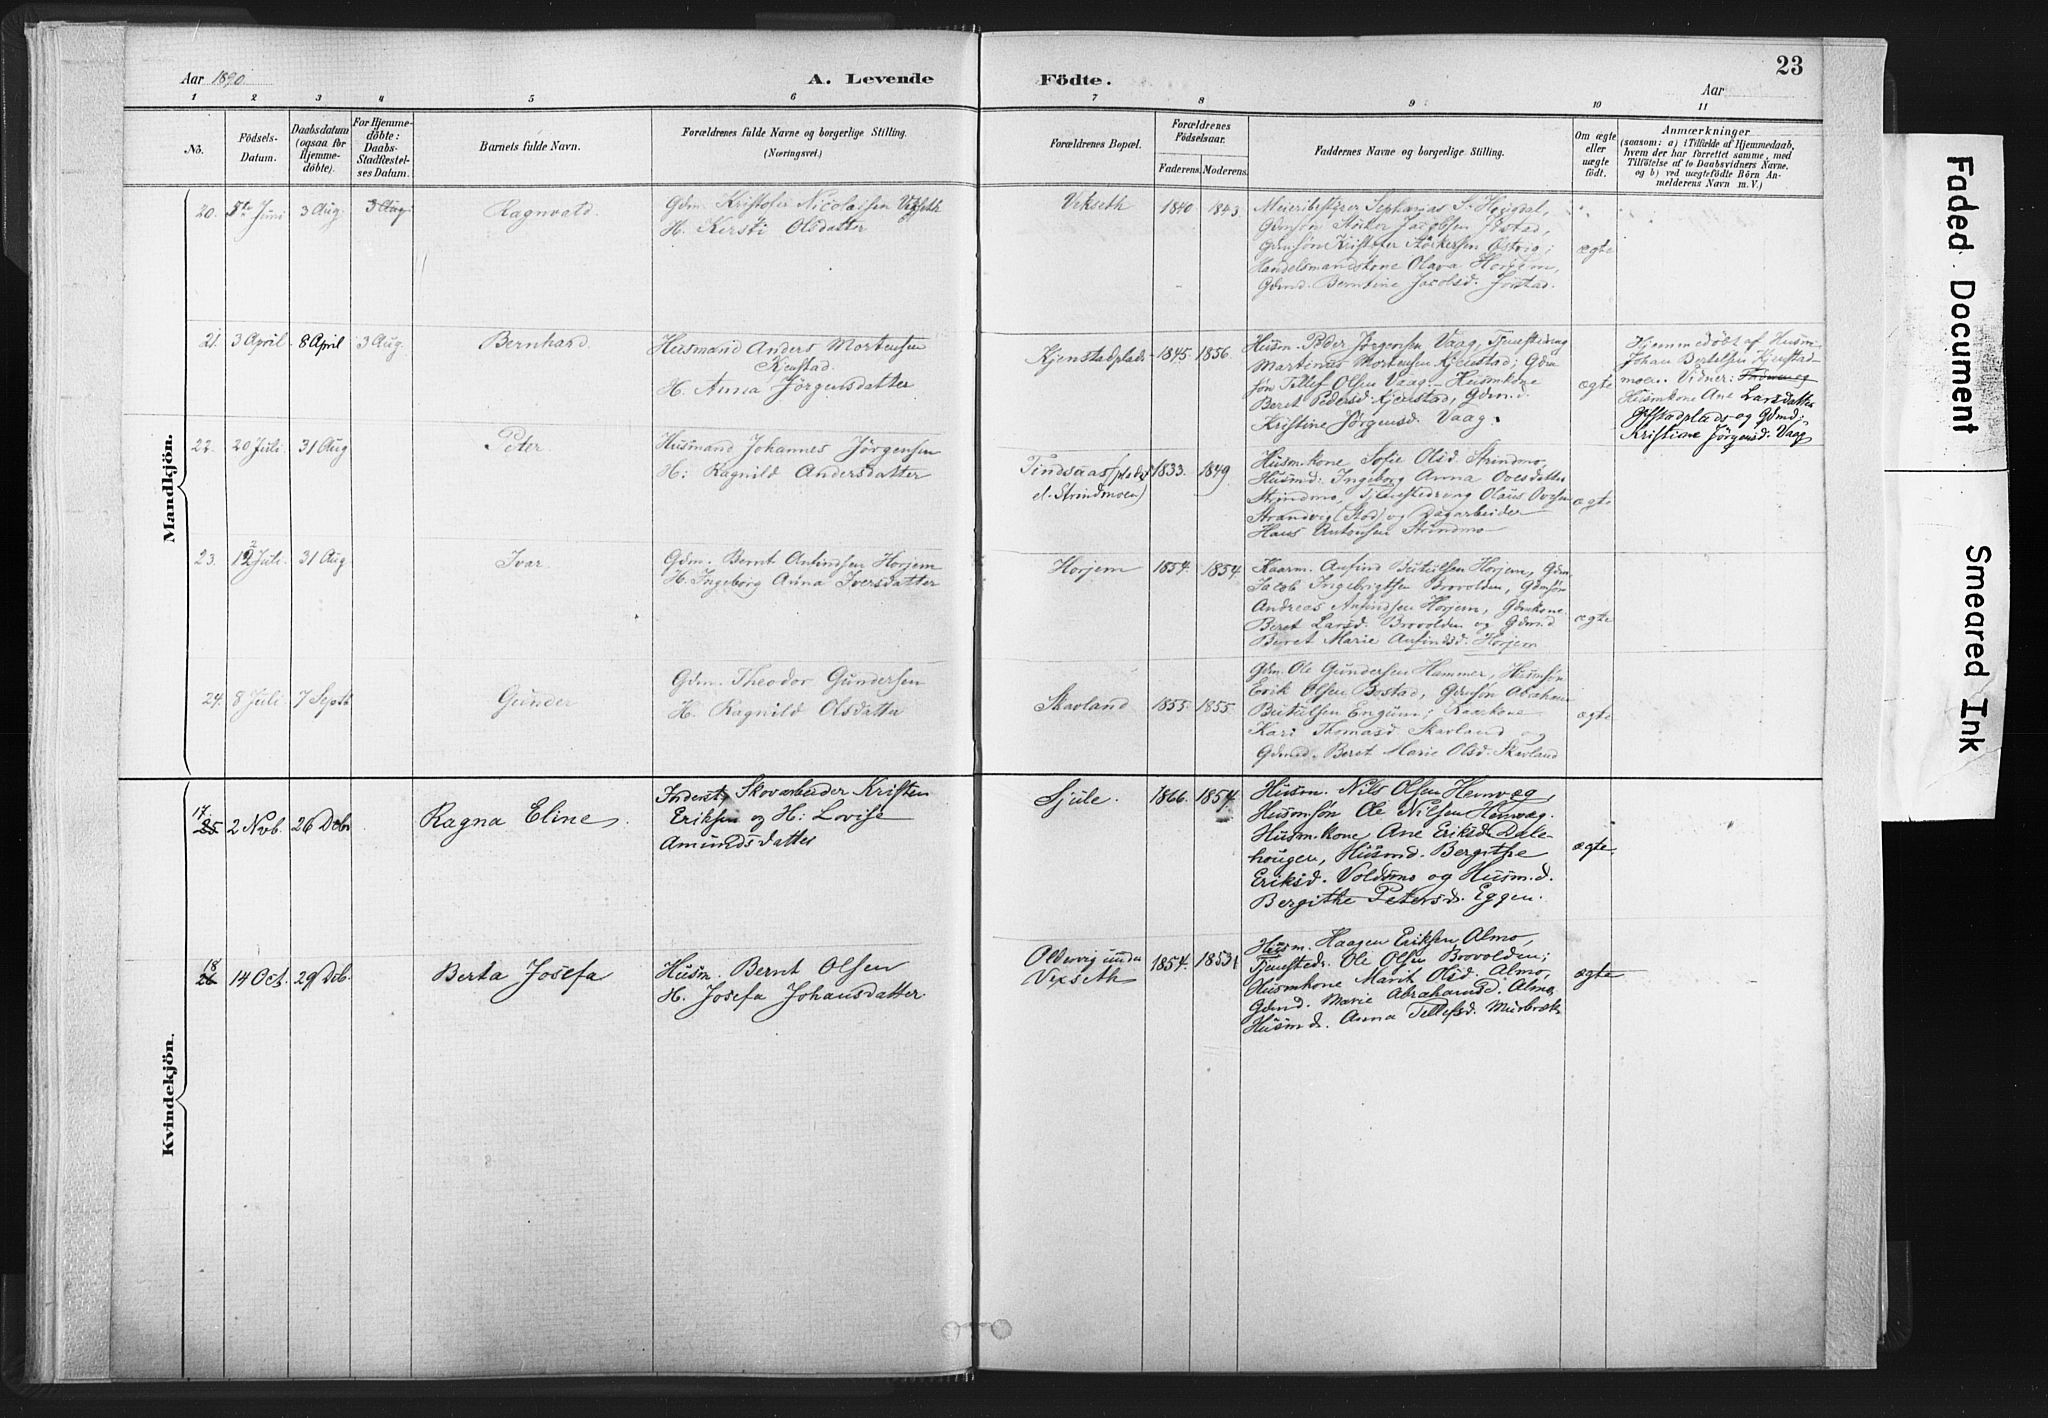 Aar 1890.
A. Levende
Födte.
Aar
23
1 2 3 4 5 6 7 8 9 10 11
No.
Födsels-
Datum.
Daabsdatum
(ogsaa for
Hjemme-
döbte).
For Hjemme-
döbte:
Daabs-
Stadfæstel-
ses Datum.
Barnets fulde Navn.
Forældrenes fulde Navne og borgerlige Stilling.
(Næringsvei.)
Forældrenes Bopæl.
Forældrenes
Födselsaar.
Faderens. Moderens.
Faddernes Navne og borgerlige Stilling.
Om ægte
eller
uægte
födt.
Anmærkninger
(saasom: a) i Tilfælde af Hjemmedaab,
hvem der har forrettet samme, med
Tilföielse af to Daabsvidners Navne.
og b) ved uægtefödte Börn An-
melderens Navn m. V.)
Mandkjön.
20. Juni 3 Aug. 3 Aug.
Ragnvald.
Gdm. Kristofer Nicolaisen Vekseth
H. Kersti Olsdatter
Vekseth 1840 1843
Meieribestyrer Sepharias S. Horjdal,
Gdmsøn Stöcker Jacobsen Jöstad,
Gdmsøn Kristofer Stöckersen Östvig;
Handelsmandskone Olava Horjem,
Gdmd. Berntine Jacobsd. Jöstad.
ægte
21. 3 April 8 April 3 Aug.
Bernhard.
Husmand Anders Mortensen
Kjenstad.
H. Anna Jörgensdatter
Kjenstadplads 1845. 1856.
Husm. Peder Jörgensen Vaag, Tjenestedreng
Martinus Mortensen Kjenstad, Gdm
søn Tellef Olsen Vaag. Husmkone
Beret Pedersd. Kjenstad, Gdmd.
Kristine Jörgensd. Vaag.
ægte
Hjemmedöbt af Husm
Johan Bertelsen Kjenstad-
moen. Vidner:
Husmkone Ane Larsdatter
og Gdmd;
Kristine Jörgensd. Vaag
22. 20 Juli 31 Aug
Peter
Husmand Johannes Jörgensen
H: Ragnild Andersdatter
Tindsaas(plads
el. Strindmoen) 1833. 1849.
Husm.kone Sofie Olsd. Strindmo,
Husmd: Ingeborg Anna Ovesdatter
Strindmo, Tjenestedreng Olaus Ovesen
Strandvig (Stod) og Dagarbeider
Hans Antonsen Strindmo
ægte
23. 12 Juli. 31 Aug
Ivar.
Gdm. Bernt Anfindsen Horjem
H. Ingeborg Anna Iversdatter
Horjem 1854. 1854.
Kaarm. Anfind Beritelsen Horjem, Gdm.
Jacob Ingebrigtsen Brovolden, Gdmsøn
Andreas Anfindsen Horjem, Gdmkone
Beret Larsd. Brovolden og Gdm.d
Beret Marie Anfindsd. Horjem
ægte
24. 8 Juli 7 Septb
Gunder
Gdm. Theodor Gundersen
H. Ragnild Olsdatter
Skavland 1855. 1855.
Gdm. Ole Gundersen Hammer, Husmsön
Erik Olsen Bostad, Gdmsøn Abraham
Beritelsen Engum; Kaarkone
Kari Thomasd. Skavland og
Gdmd. Beret Marie Olsd. Skavland
ægte
Kvindekjön.
17
25 2 Nvb. 26 Debr
Ragna Eline.
Inderst, Skovarbeider Kristen
Eriksen og H: Lovise
Amundsdatter
Sjule. 1866. 1854.
Husm. Nils Olsen Hemvæg
Husmsøn Ole Nilsen Hemvæg.
Husm.kone Ane Eriksd. Dale-
haugen, Husmd. Bergithe
Eriksd. Voldsmo og Husm.d.
Bergithe Petersd. Eggen.
ægte.
18
26 14 Oct. 29 Deb.
Berta Josefa
Husm. Bernt Olsen
H. Josefa Johansdatter.
Oldervig under
Vexseth 1854. 1853.
Husm. Haagen Eriksen Almo,
Tjenestedr. Ole Olsen Brovolden;
Husmkone Marit Olsd. Almo,
Gdmd. Marie Abrahamsd. Almo,
Husmd. Anna Tellefsd. Murbræk
ægte
Faded Document
Smeared Ink